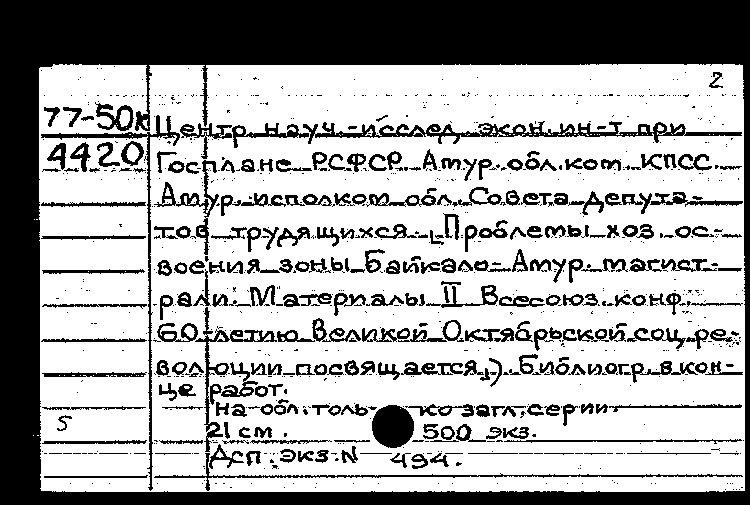 2
77-50к Центр. науч.-исслед. экон. ин-т при
4420 Госплане РСФСР. Амур. обл. ком. КПСС.
Амур. исполком обл. Совета депута-
тов трудящихся. [Проблемы хоз. ос-
воения зоны Байкало-Амур. магист-
рали. Материалы II Всесоюз. конф.
60-летию Великой Октябрьской соц. ре-
волюции посвящается]. Библиогр. в кон-
це работ.
На обл. только загл. серии.
5 21 см. 500 экз.
Дсп. экз. N 494.